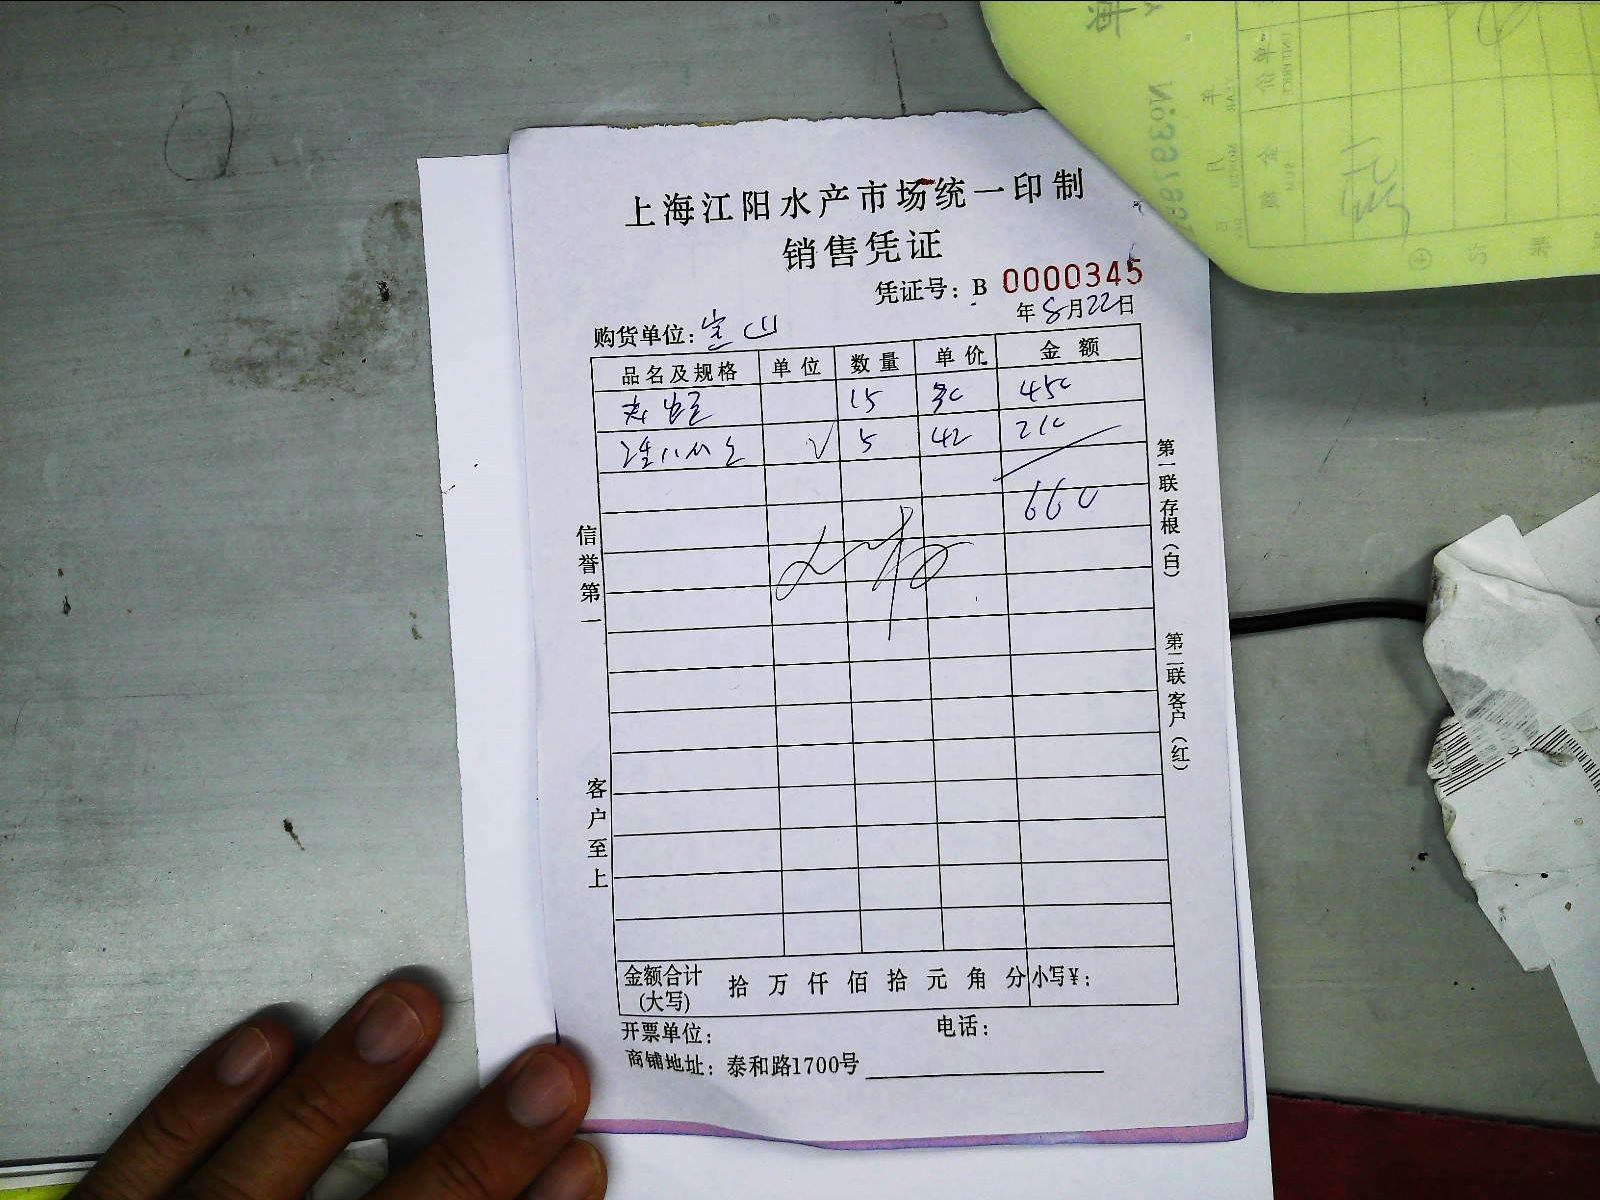 上海江阳水产市场统一印制
销售凭证
凭证号：B 0000345
年8月22日
购货单位：宝山
品名及规格 单位 数量 单价 金额
15 30 450
√ 5 42 210
660
信誉第一
客户至上
第一联存根（白）
第二联客户（红）
金额合计（大写） 拾 万 仟 佰 拾 元 角 分 小写¥：
开票单位： 电话：
商铺地址：泰和路1700号